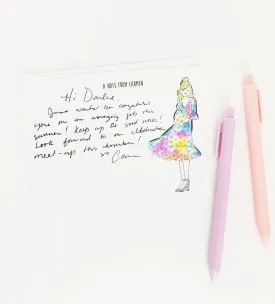 A NOTE FROM CARMEN
Hi Darlie,
Just wanted to congratulate
you on an amazing job this
summer! Keep up the good work!
Look forward to our celebration
meet-up this
xo